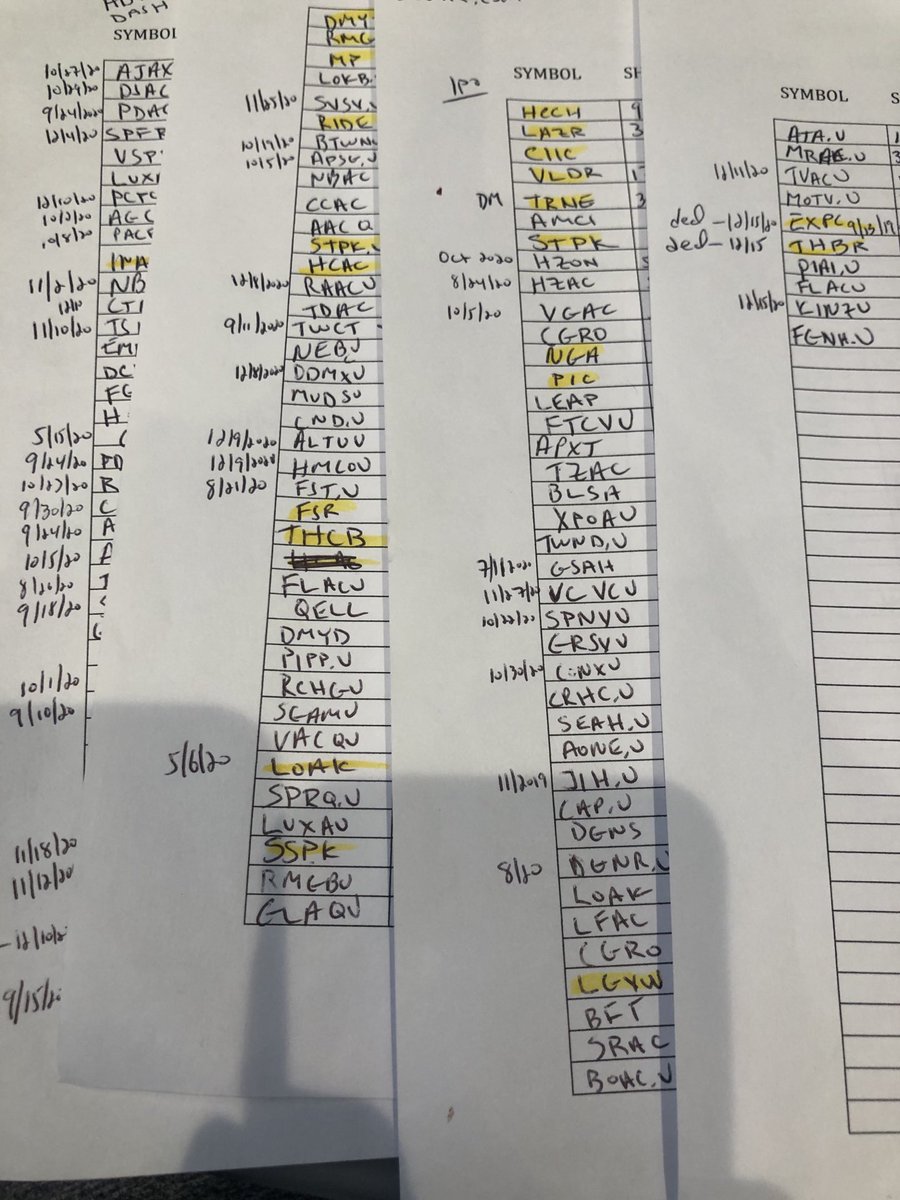 DASH
SYMBOL
10/27/20 AJAX
10/29/20 DSAC
9/24/2020 PDAC
12/4/20 SPFR
VSP
LUXA
12/10/20 PCPC
10/2/20 AGC
10/8/20 PACE
INA
11/2/20 NB
CTI
11/10/20 TS
EM
DC
FG
H
5/15/20
9/24/20 PD
10/27/20 B
9/30/20 C
9/24/20 A
10/5/20
8/26/20
9/18/20
10/1/20
9/10/20
11/18/20
11/12/20
9/15/20
DMY
RMG
MP
LOKB.
11/25/20 SVSV.
RIDE
10/17/20 BTWN
10/5/20 APSG.U
NBAC
CCAC
AACQ
STPK.
HCAC
12/8/2020 RAACU
TDAC
9/11/2020 TWCT
NEBC
12/8/2020 DDMXU
MUDSU
CND.U
12/9/2020 ALTUU
12/9/2020 HMCOU
8/21/20 FST.U
FSR
THCB
FLACU
QELL
DMYD
PIPP.U
RCHGU
SGAMU
VACQU
5/6/20 LOAK
SPRQ.U
LUXAU
SSPK
RMGBU
GLAQU
IPO
SYMBOL
HCCH 9
LAZR 3
CIIC
VLDR 1
DM TRNE 3
AMCI
STPK
OCT 2020 HZON
8/24/20 HZAC
10/5/20 VGAC
CGRO
NGA
PIC
LEAP
FTCVU
APXT
TZAC
BLSA
XPOAU
TWND.U
7/1/2020 GSAH
11/27/20 VCVCU
10/22/20 SPNVU
GRSVU
10/30/20 CONXU
CRHC.U
SEAH.U
AONE.U
11/2019 JIH.U
CAP.U
DGNS
8/20 DGNR.U
LOAK
LFAC
CGRO
LGVW
BFT
SRAC
BOAC.U
SYMBOL
ATA.U
MRAC.U
12/11/20 TVACU
MOTV.U
ded - 12/15/20 EXPC 9/13/17
ded - 12/15 THBR
PIAI.U
FLACU
12/15/20 KINZU
FGNA.U